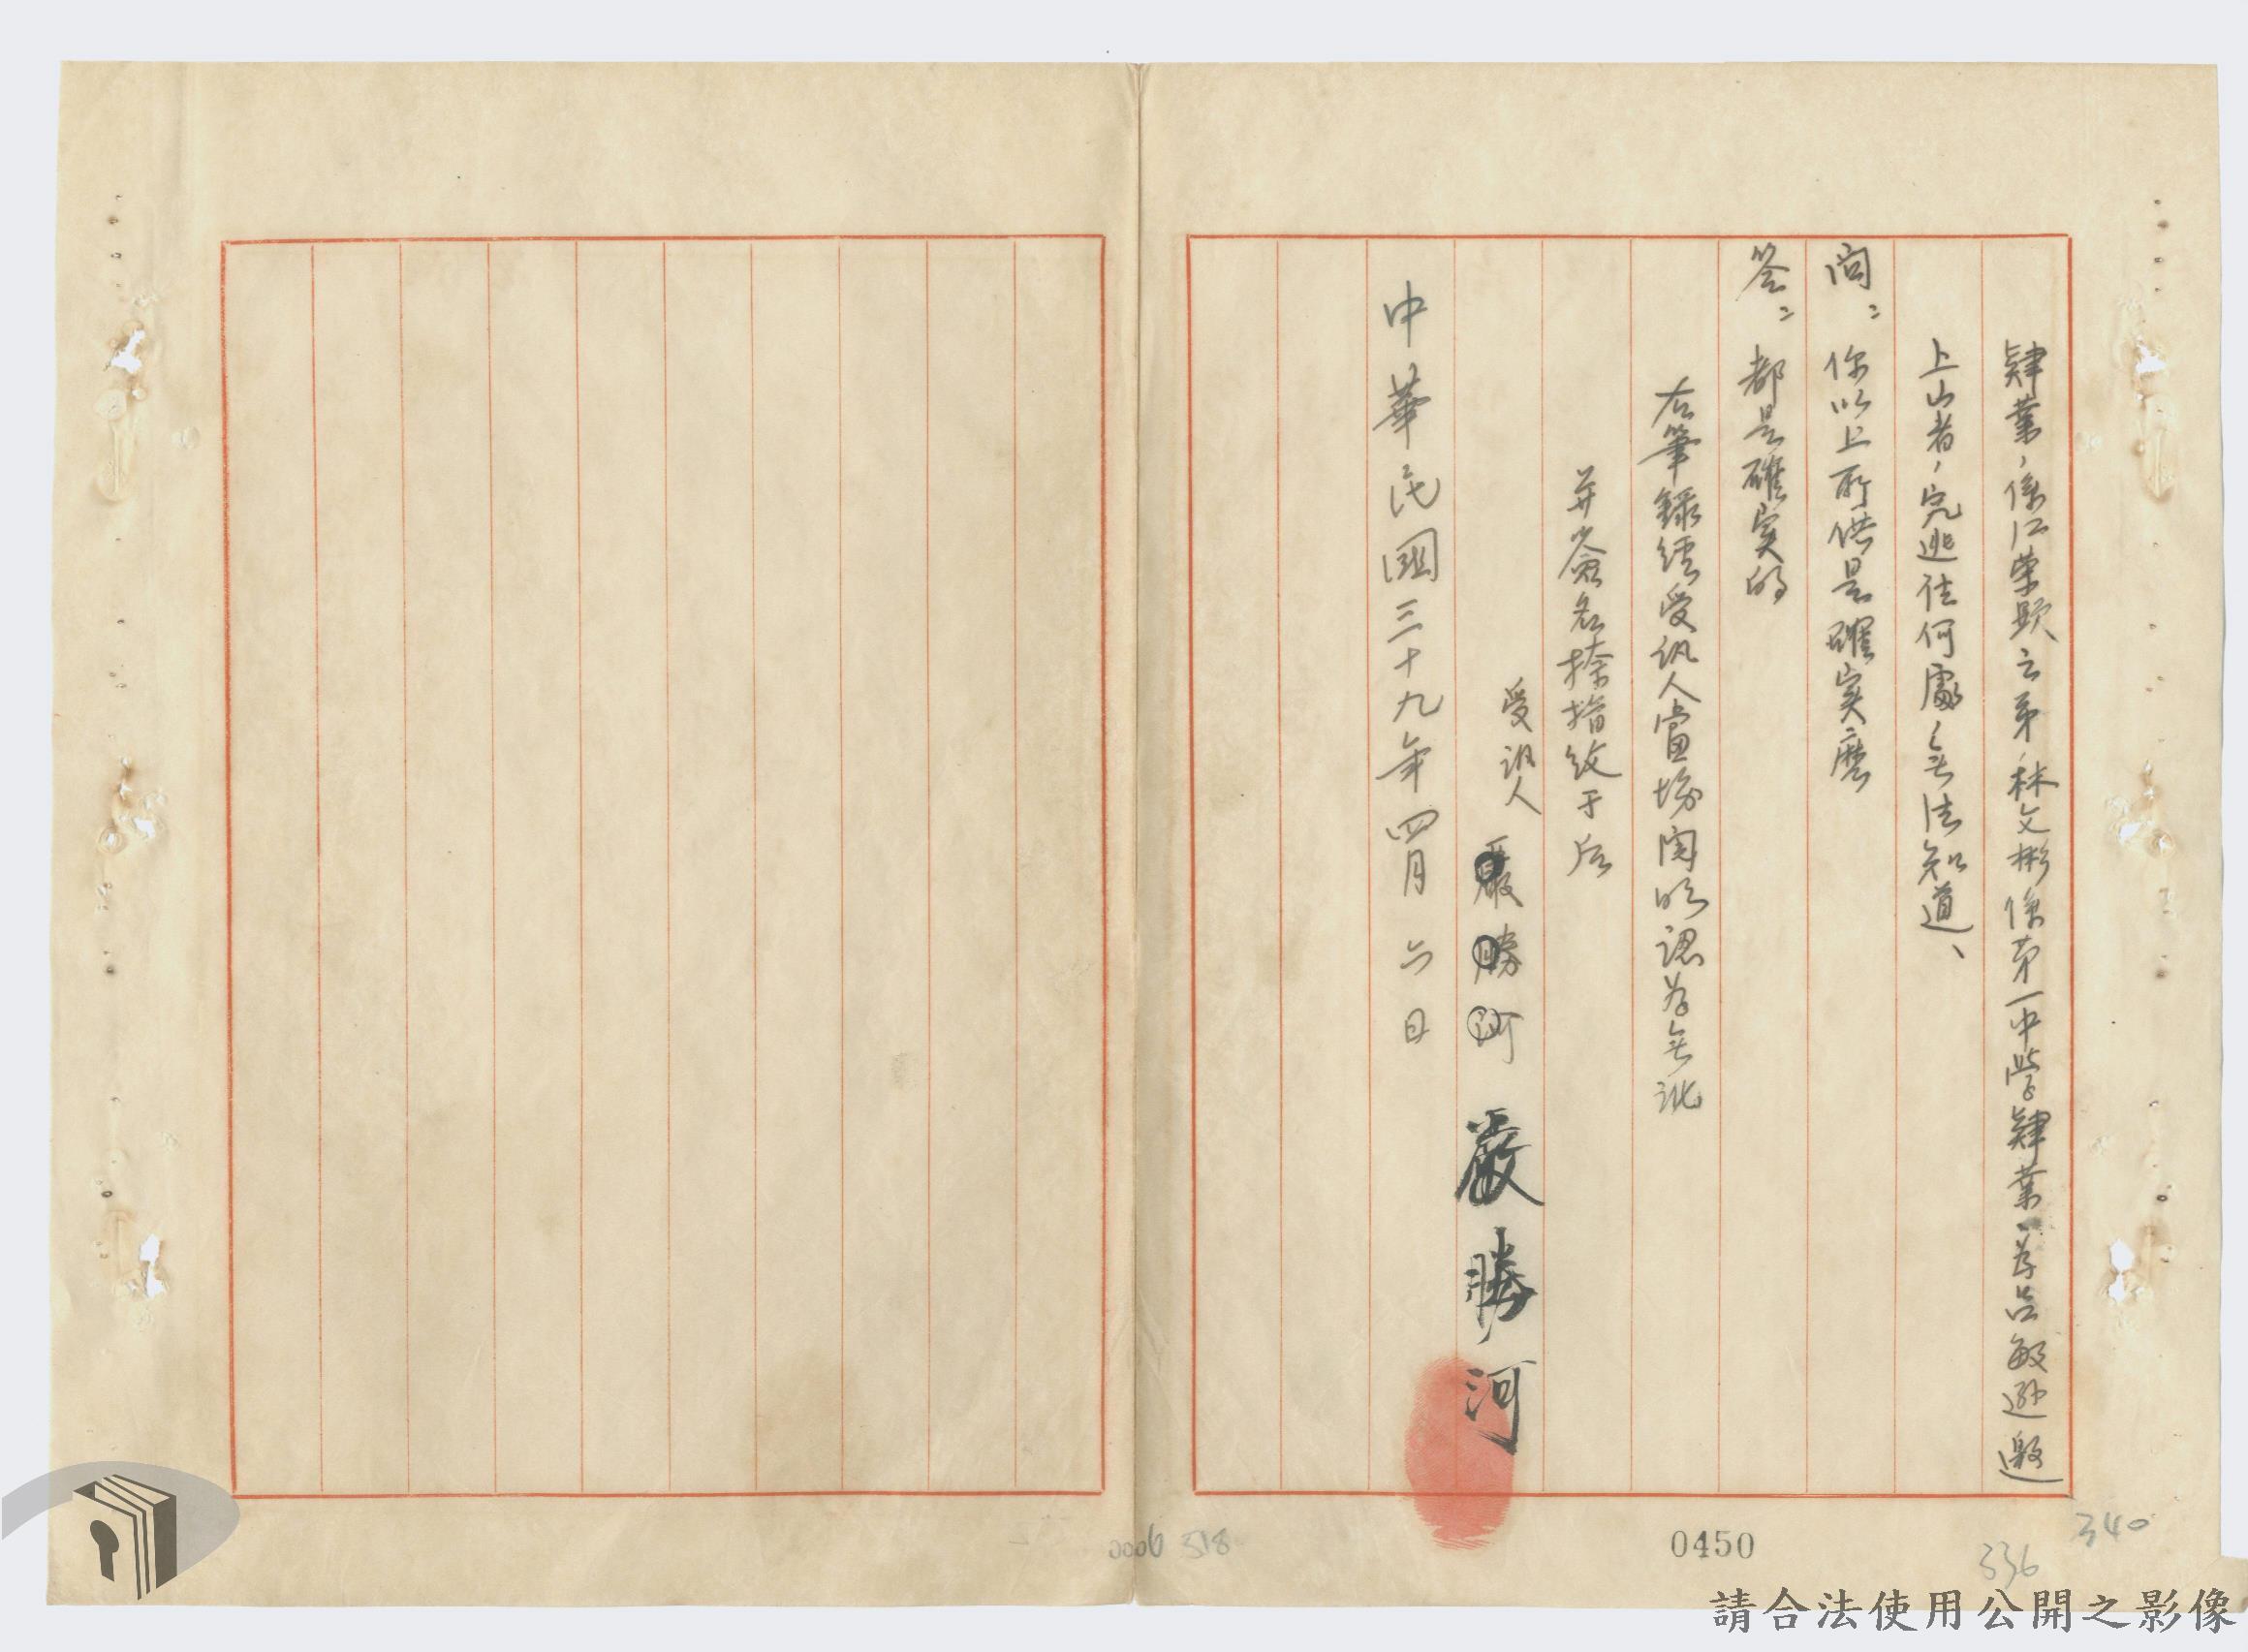 肄業，係江榮顯之弟林文彬係第一中學肄業、為呂敏遜邀
上山者，究逃往何處、無法知道、
問：你以上所供是確实麼
答：都是確实的
右筆錄經受訊人當場閱明認為無訛
并簽名捺指紋于后
受訊人 嚴勝河 嚴勝河
中華民國三十九年四月六日
0006 518
0450
336
340
請合法使用公開之影像